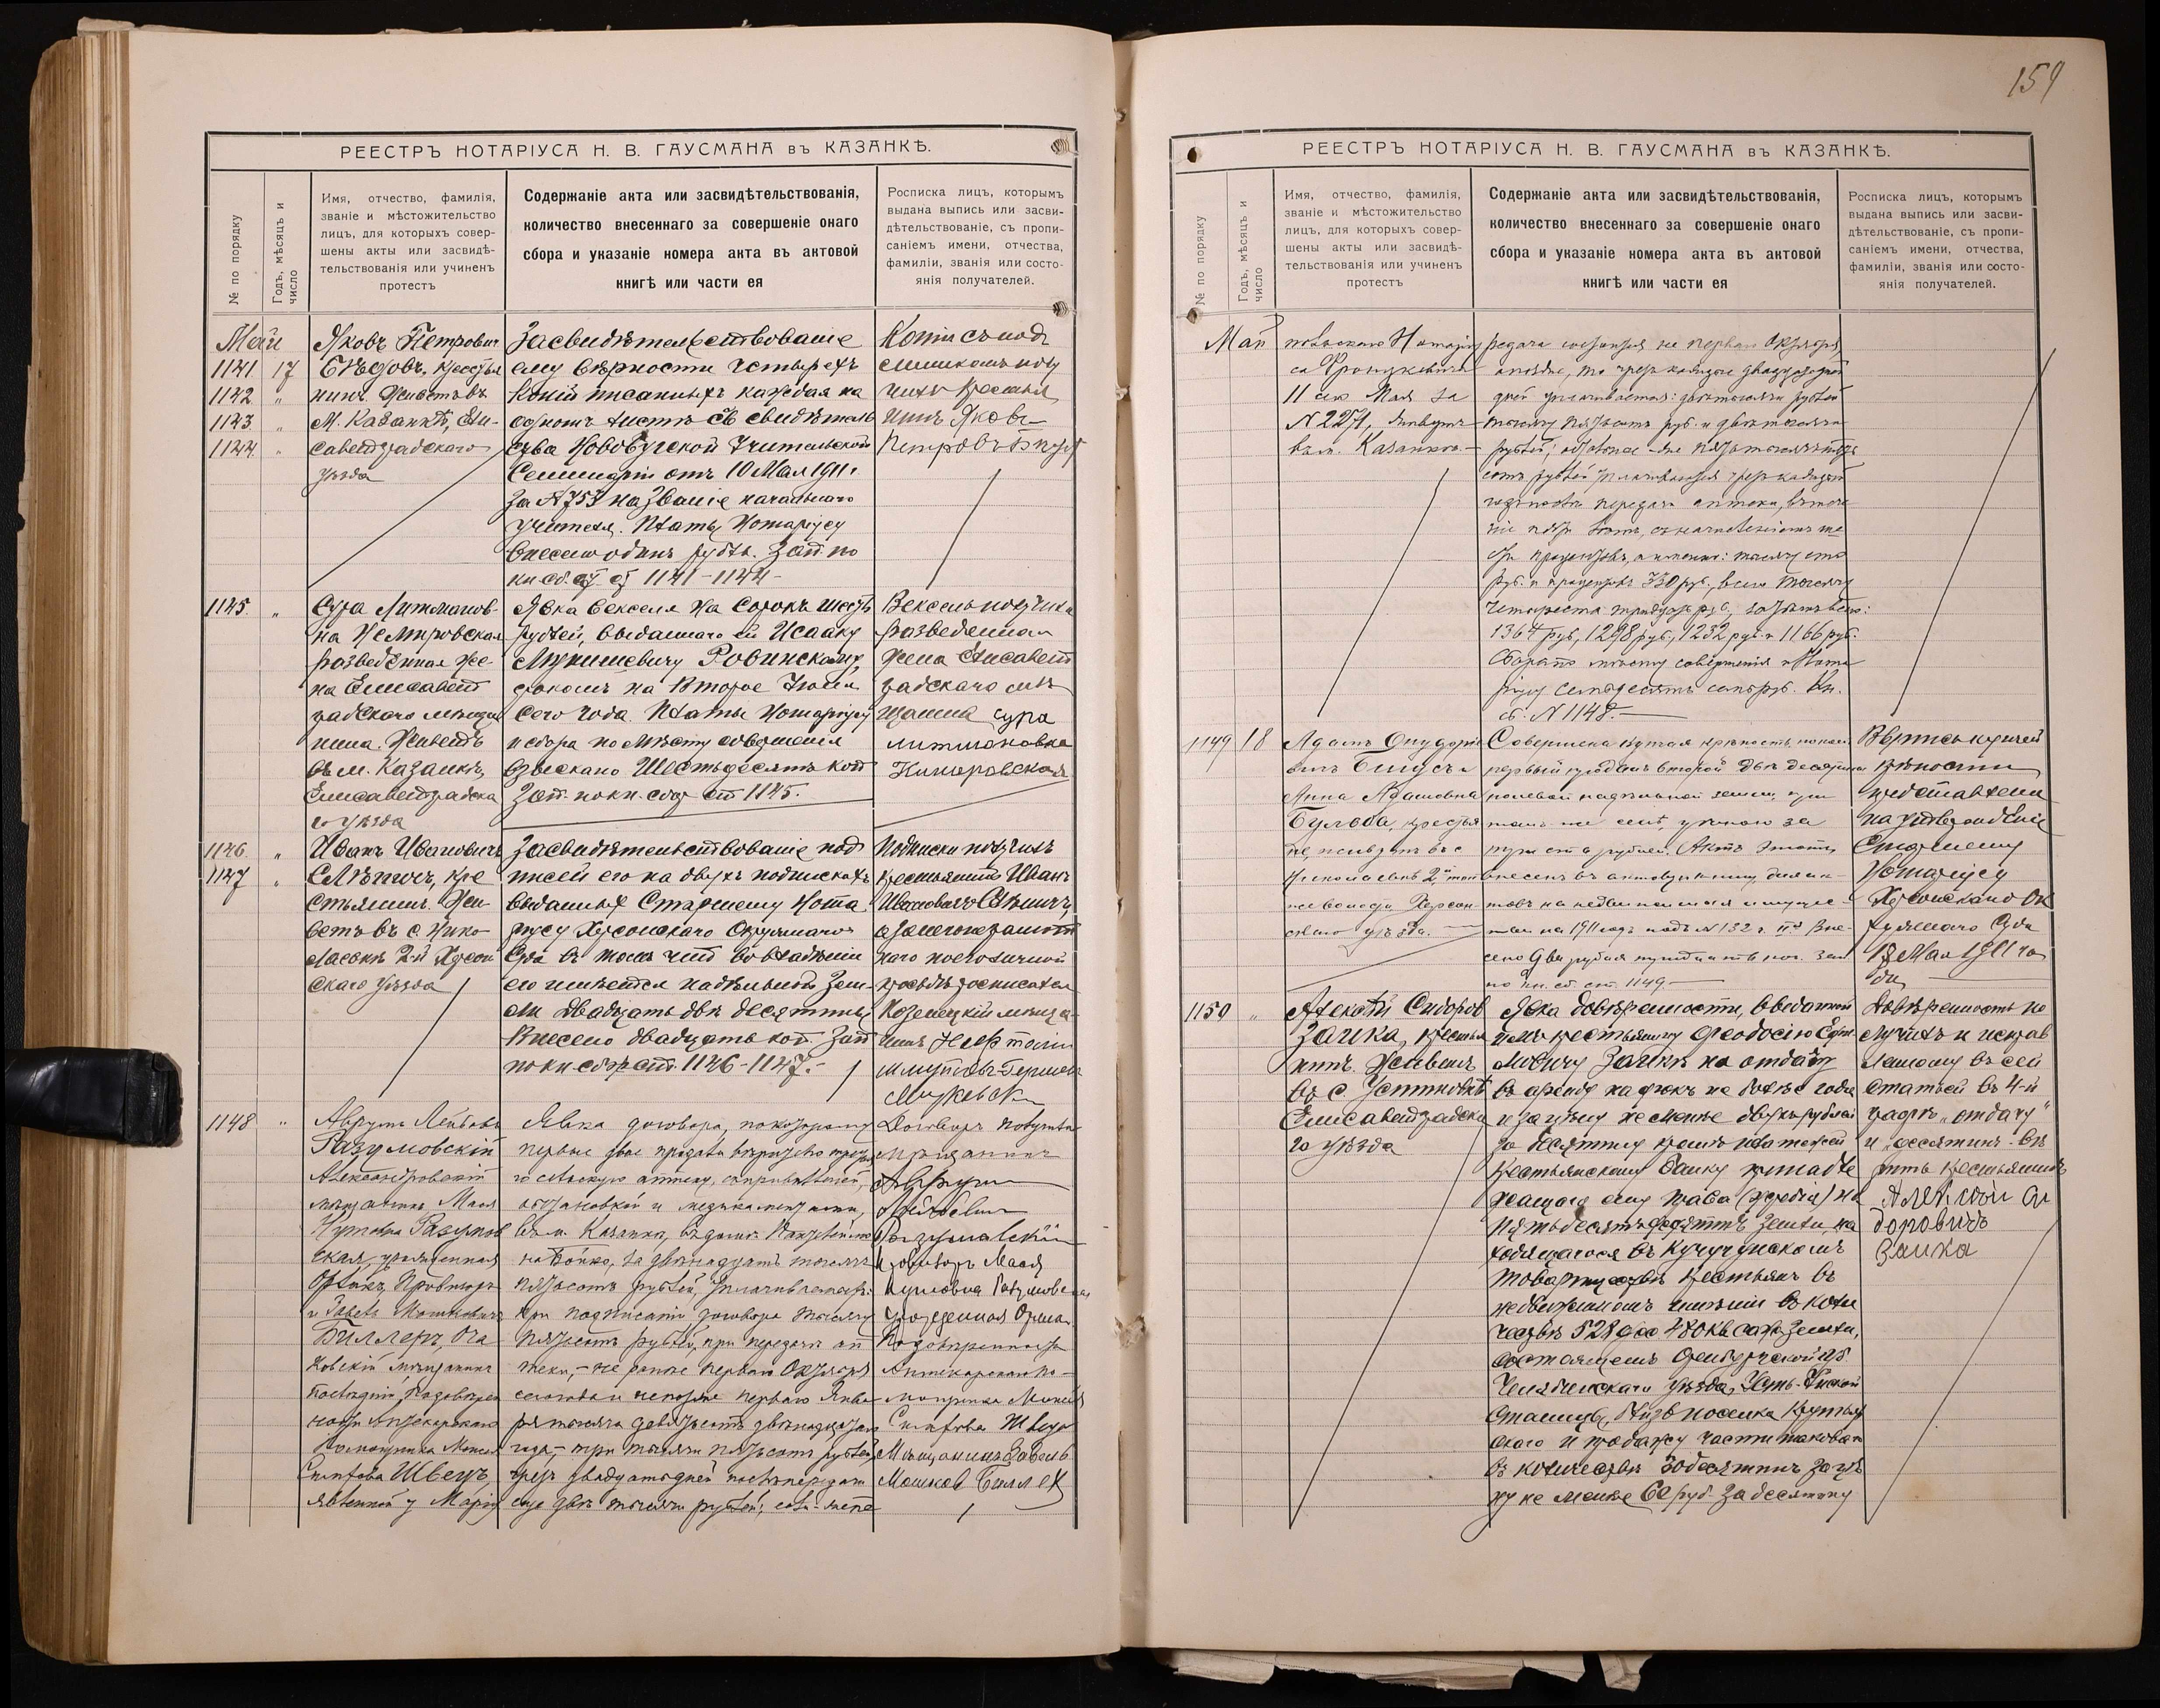 159
РЕЕСТРЪ НОТАРІУСА Н. В. ГАУСМАНА въ КАЗАНКѢ.
№ по порядку
Годъ, мѣсяцъ и
число
Имя, отчество, фамилія,
званіе и мѣстожительство
лицъ, для которыхъ совер-
шены акты или засвидѣ-
тельствованія или учиненъ
протестъ
Содержаніе акта или засвидѣтельствованія,
количество внесеннаго за совершеніе онаго
сбора и указаніе номера акта въ актовой
книгѣ или части ея
Росписка лицъ, которымъ
выдана выпись или засви-
дѣтельствованіе, съ пропи-
саніемъ имени, отчества,
фамиліи, званія или состо-
янія получателей.
Май
1141 17
1142 "
1143 "
1144 "
Яковъ Петровичъ
крестья
нинъ. Живетъ въ
М. Казанкѣ, Ели-
саветградскаго
уѣзда
Засвидѣтельствованіе
ему вѣрности четырехъ
копій писанныхъ каждая на
одномъ листѣ съ свидѣтель
ства Новобугской Учительской
Семинаріи отъ 10 Мая 1911 г.
за № 753 на званіе начальнаго
учителя. Платы Нотаріусу
внесено одинъ рубль. Зап. по
кн. сб. 1141-1144-
Копіи съ под
линникомъ полу
чилъ крестья
нинъ Яковъ
Петровъ
1145. "
Сура Литманов-
на Немировская
разведенная же-
на Елисавет
градскаго мѣща
нина. Живетъ
въ м. Казанкѣ,
Елисаветградска
го уѣзда
Явка векселя на сорокъ шесть
рублей, выданнаго ей Исааку
Ровинскому,
срокомъ на второе Іюля
сего года. Платы Нотаріусу
и сбора по мѣсту совершенія
взыскано шестьдесятъ коп
Зап. по кн. сбор ст 1145.
Вексель получила
разведенная
жена Елисавет
градскаго мѣ
щанина Сура
Литмановна
1146 "
1147 "
Иванъ Ивановичъ
Слѣпичъ, кре
стьянинъ. Жи-
ветъ въ с. Нико
лаевкѣ 2-й Херсон
скаго уѣзда
Засвидѣтельствованіе под
писей его на двухъ подпискахъ
выданныхъ Старшему Нота
ріусу Херсонскаго Окружнаго
Суда въ томъ что во владѣніи
его имѣется надѣльной зем
ли двадцать двѣ десятины
Внесено двадцать коп. Зап
по кн. сбор ст. 1146-1147.-
Подписки получилъ
крестьянинъ Иванъ
Ивановичъ Слѣпичъ,
а за неграмот
наго по его личной
просьбѣ росписался
мѣща-
нинъ
1148 "
Аврумъ Лейбовъ
Разумовскій
Александровскій
мѣщанинъ Мася
Разумов
ская, урожденная
Провизоръ
и Завель Мошковичъ
Биллеръ, Оча
ковскій мѣщанинъ
послѣдній по довѣрен
ности Аптекарскаго
Помощника
Швецъ
явленной у Марія
Явка договора, по которому
первые двое продали
сельскую аптеку,
обстановкой и медикаментами,
въ м. Казанка, въ домѣ
за двѣнадцать тысячъ
пятьсотъ рублей, уплачиваемыхъ:
при подписаніи договора тысячу
пятьсотъ рублей, при передачѣ ап
теки,- не ранѣе перваго Октября
сего года и не позже перваго Янва
ря тысяча девятьсотъ двѣнадцатаго
года,- три тысячи пятьсотъ рублей,
чрезъ двадцать дней послѣ передачи
еще двѣ тысячи рублей; если-же пе
Договоръ получили
мѣщанинъ
Аврумъ
Лейбовичъ
Разумовскій
Провизоръ Мася
Разумовская
урожденная
По довѣренности
Аптекарскаго по-
мощника
Швеца
Мѣщанинъ Завель
Мошков Биллер
РЕЕСТРЪ НОТАРІУСА Н. В. ГАУСМАНА въ КАЗАНКѢ.
№ по порядку
Годъ, мѣсяцъ и
число
Имя, отчество, фамилія,
званіе и мѣстожительство
лицъ, для которыхъ совер-
шены акты или засвидѣ-
тельствованія или учиненъ
протестъ
Содержаніе акта или засвидѣтельствованія,
количество внесеннаго за совершеніе онаго
сбора и указаніе номера акта въ актовой
книгѣ или части ея
Росписка лицъ, которымъ
выдана выпись или засви-
дѣтельствованіе, съ пропи-
саніемъ имени, отчества,
фамиліи, званія или состо-
янія получателей.
Май
польскаго Нотаріу
са
11 Мая за
№ 2271, живутъ
въ м. Казанкѣ.-
редача состоится не перваго Октября
а позже, то чрезъ каждые двадцать
дней уплачивается: двѣ тысячи рублей
тысячу пятьсотъ руб. и двѣ тысячи
рублей; остальные-же пять тысячъ пять
сотъ рублей уплачиваются чрезъ каждый
годъ послѣ передачи аптеки, въ тече
ніе лѣтъ,
процентовъ, а именно: тысячу сто
руб. и процентовъ 330 руб., всего тысячу
четыреста тридцать руб, затѣмъ:
1364 руб, 1298 руб, 1232 руб. и 1166 руб.
Сбора по мѣсту совершенія и Нота
ріусу семьдесятъ семь руб. Кн.
сб. № 1148.
1149 18
Адамъ
и
Анна Адамовна
Бульба, крестья
не, живутъ въ с
Николаевкѣ 2й, той
же волости Херсон-
скаго уѣзда.
Совершена купчая крѣпость, по коей
первый продалъ второй двѣ десятины
полевой надѣльной земли, при
томъ же селѣ, цѣною за
триста рублей. Актъ этотъ
внесенъ въ актовую книгу, для ак-
товъ на недвижимыя имуще-
ства на 1911 годъ подъ № 132 г. Вне-
сено два рубля пятнадцать коп. Зап
по кн. сб. ст. 1149
Выпись купчей
крѣпости
представлена
на утвержденіе
Старшему
Нотаріусу
Херсонскаго Ок
ружнаго Суда
18 Мая 1911 го
да
1150 "
Алексѣй Сидоров
Заика, крестья
нинъ. Живетъ
въ с. Устиновкѣ
Елисаветградска
го уѣзда
Явка довѣренности, выданной
имъ крестьянину Феодосію
Заикѣ на отдачу
въ аренду на срокъ не болѣе года
и за цѣну не менѣе двухъ рублей
за десятину
Крестьянскому банку принадле
жащаго ему права (жребія) на
пятьдесятъ десятинъ земли, на
ходящагося въ Кучугунскомъ
товариществѣ крестьянъ въ
недвижимомъ имѣніи въ коли
чествѣ 528 дес 480 кв. саж. земли,
состоящемъ Оренбургской губ.
Челябинскаго уѣзда, Усть-Уйской
Станицы, близъ поселка
скаго и продажу части таковой
въ количествѣ 30 десятинъ за цѣ
ну не менѣе 60 руб. за десятину
Довѣренность по
лучилъ и исправ
ленному въ сей
статьѣ въ 4-й
графѣ „отдачу"
и „десятинъ" вѣ
рить крестьянинъ
Алексѣй Си
доровичъ
Заика